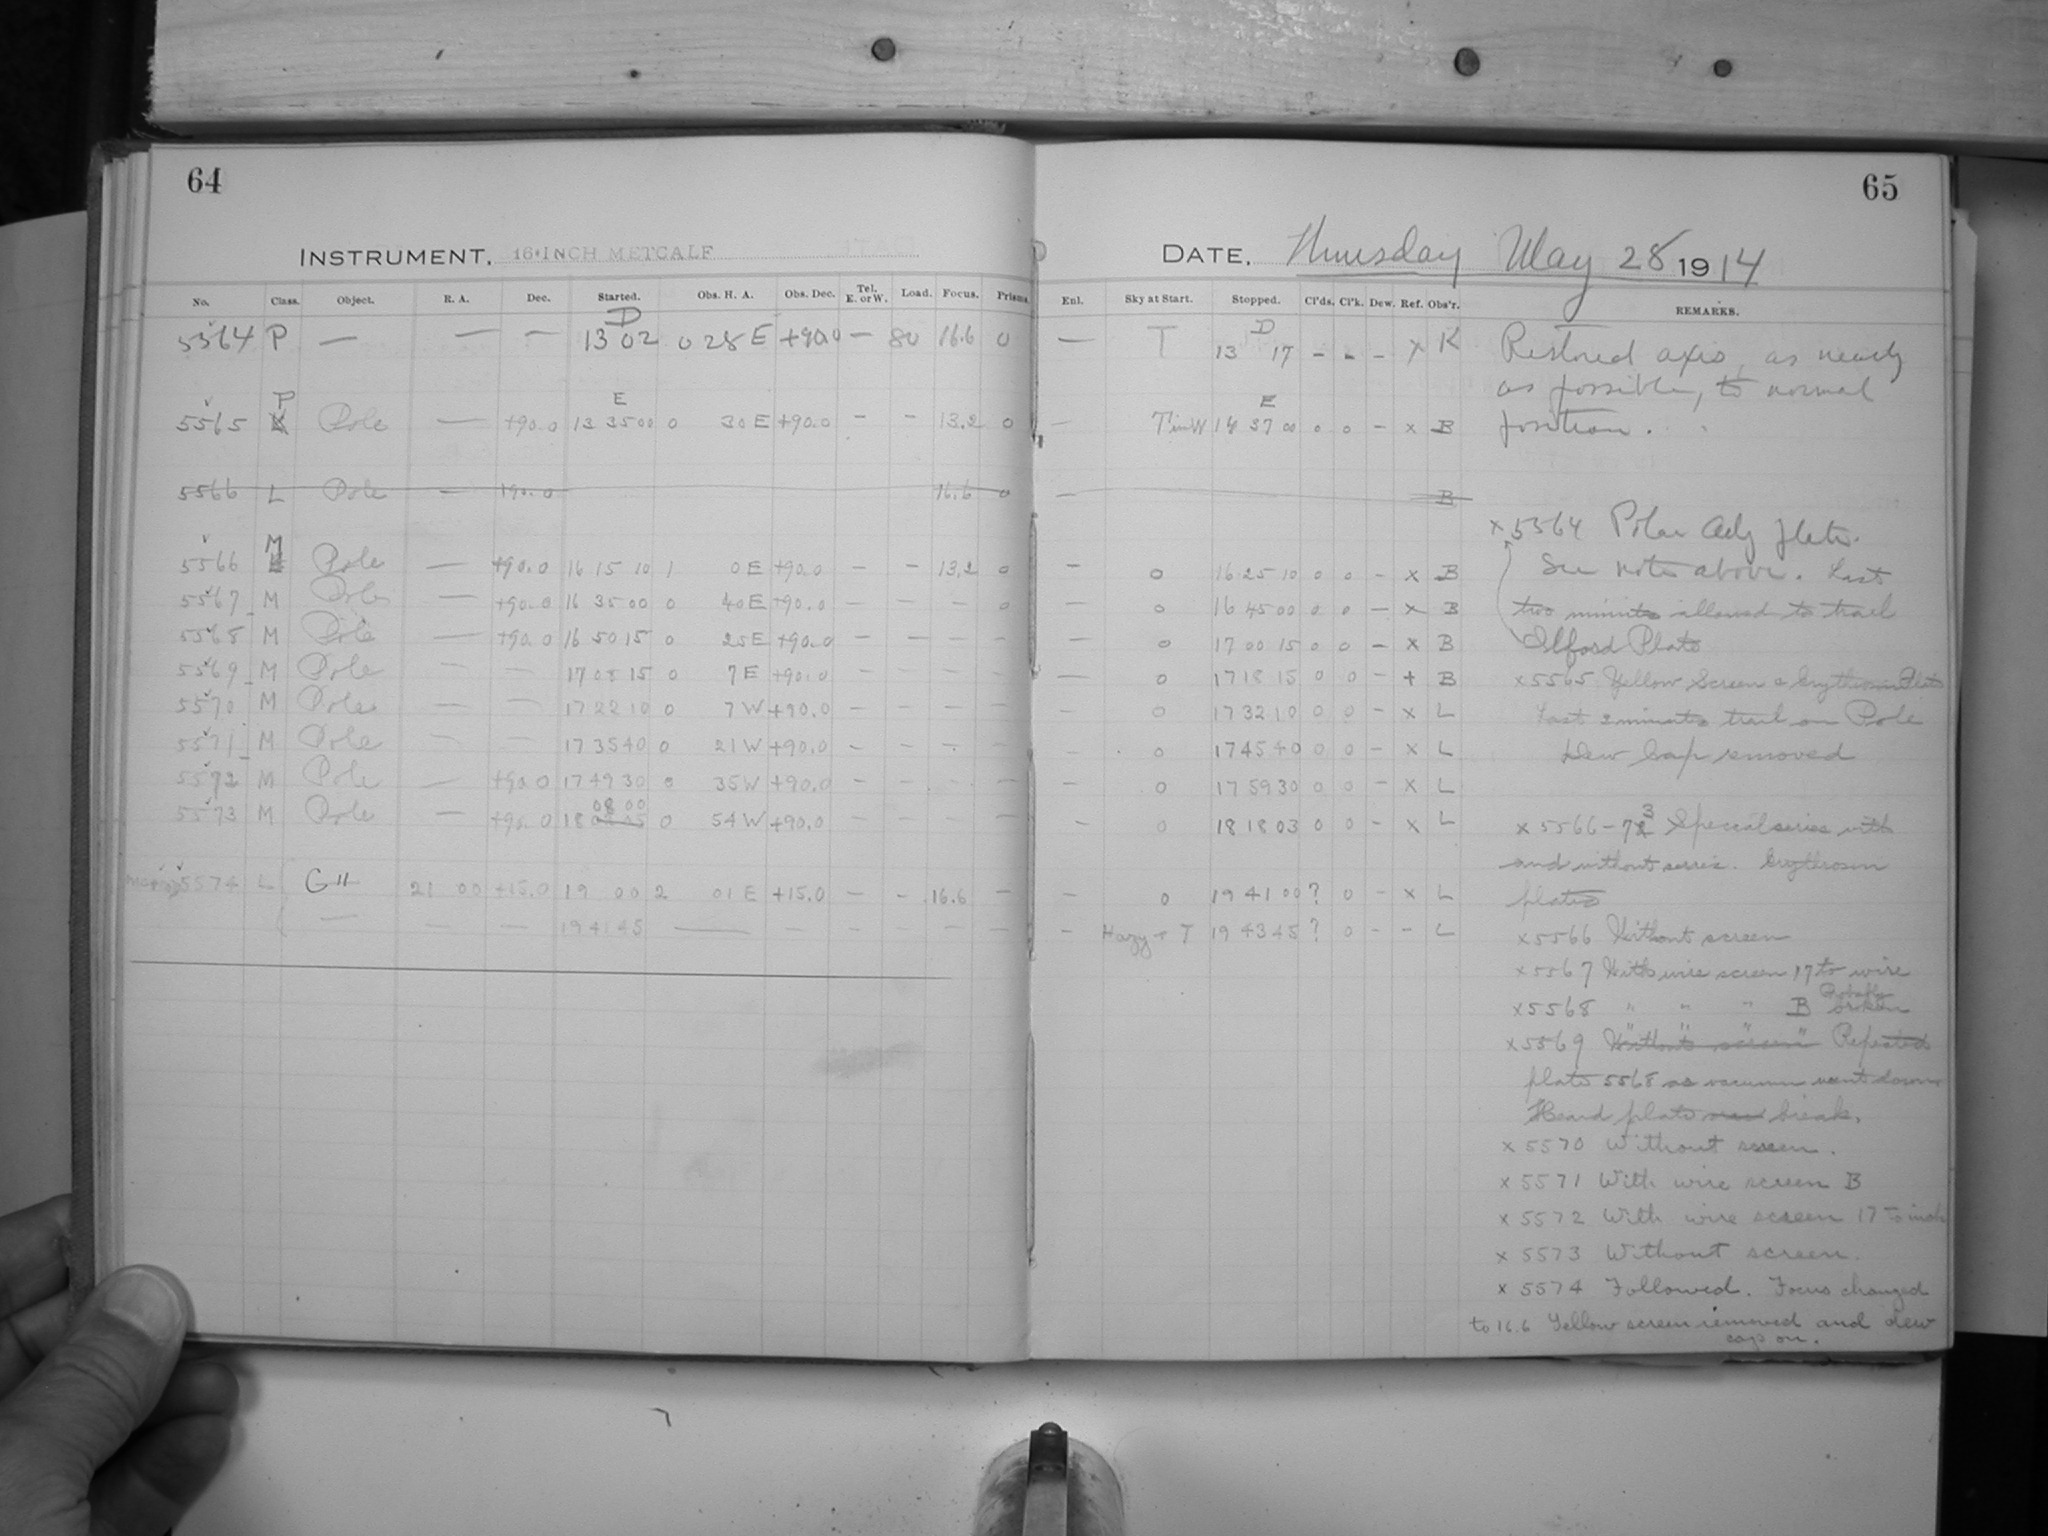 64
INSTRUMENT, 16-INCH METCALF
No. Class. Object. R. A. Dec. Started. Obs. H. A. Obs. Dec. Tel. E. or W. Load. Focus. Prisms.
5564 P — — — D 13 02 0 28 E +90.0 — 80 16.6 0
5565 P Pole — +90.0 E 13 35 00 0 30 E +90.0 — — 13.2 0
5566 L Pole — +90.0 16.6 0
5566 M Pole — +90.0 16 15 10 1 0 E +90.0 — — 13.2 0
5567 M Pole — +90.0 16 35 00 0 40 E +90.0 — — — 0
5568 M Pole — +90.0 16 50 15 0 25 E +90.0 — — — —
5569 M Pole — — 17 08 15 0 7 E +90.0 — — — —
5570 M Pole — — 17 22 10 0 7 W +90.0 — — — —
5571 M Pole — — 17 35 40 0 21 W +90.0 — — — —
5572 M Pole — +90.0 17 49 30 0 35 W +90.0 — — — —
5573 M Pole — +90.0 18 08 00 0 54 W +90.0 — — — —
5574 L G 11 21 00 +15.0 19 00 2 01 E +15.0 — — 16.6 —
— — — 19 41 45 — — — — — —
65
DATE, Thursday May 28 1914
Enl. Sky at Start. Stopped. Cl'ds. Cl'k. Dew. Ref. Obs'r. REMARKS.
— T D 13 17 — — — x K
— T in W E 14 37 00 0 0 — x B
— B
— 0 16 25 10 0 0 — x B
— 0 16 45 00 0 0 — x B
— 0 17 00 15 0 0 — x B
— 0 17 18 15 0 0 — + B
— 0 17 32 10 0 0 — x L
— 0 17 45 40 0 0 — x L
— 0 17 59 30 0 0 — x L
— 0 18 18 03 0 0 — x L
— 0 19 41 00 ? 0 — x L
— Hazy + T 19 43 45 ? 0 — — L
Restored axis, as nearly
as possible, to normal
position.
x 5564 Polar Adj plate.
See note above. Last
two minutes allowed to trail
Ilford Plate
x 5565 Yellow Screen & Erythrosin Plate
Last 2 minutes trail on Pole
Dew Cap removed
x 5566-73 Special series with
and without screen. Erythrosin
plates
x 5566 Without screen
x 5567 With wire screen 17 to wire
x 5568 " " " B Probably broken
x 5569 " " " " Repeated
plate 5568 as vacuum went down
Heard plate break.
x 5570 Without screen.
x 5571 With wire screen B
x 5572 With wire screen 17 to inch
x 5573 Without screen.
x 5574 Followed. Focus changed
to 16.6 Yellow screen removed and dew
cap on.